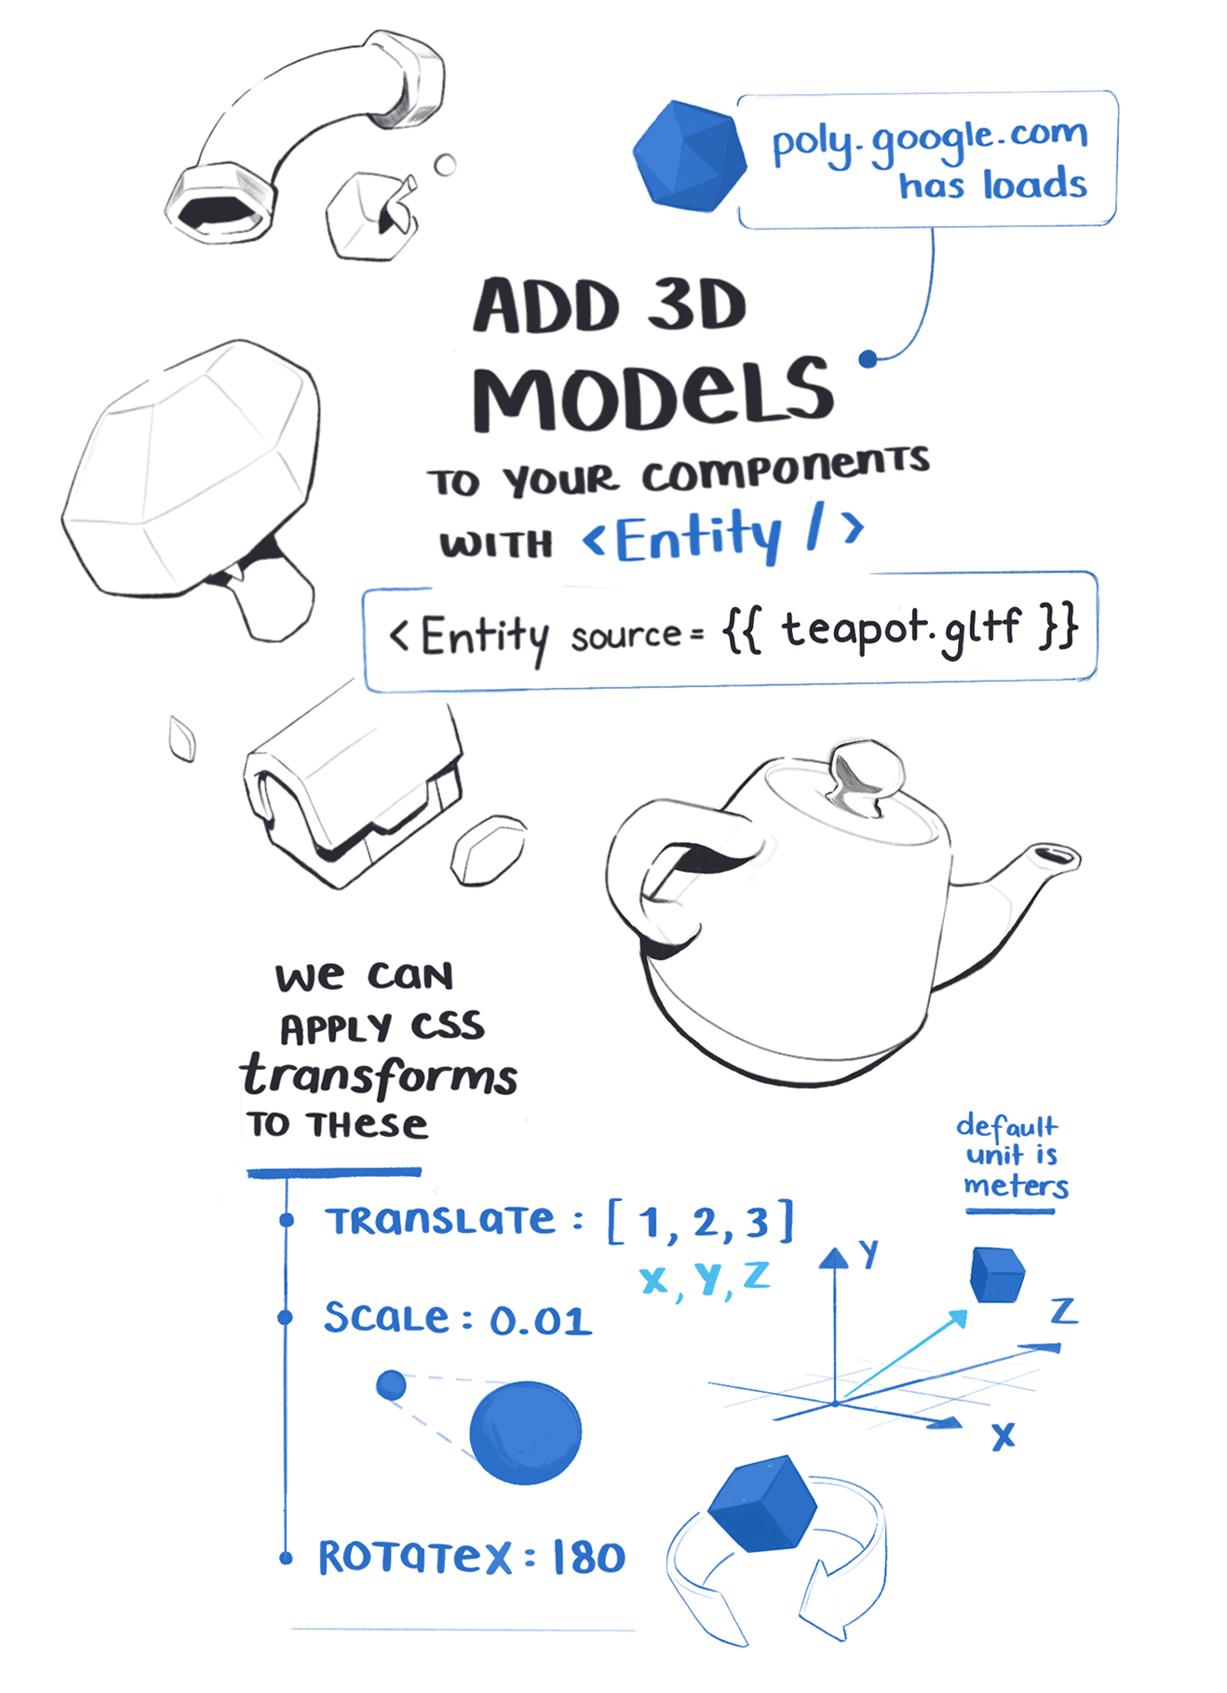 poly.google.com
has loads
ADD 3D
MODeLS
TO YOUR COMPONENTS
WITH <Entity />
<Entity source= {{ teapot.gltf }}
We CaN
APPLY CSS
transforms
TO THese
default
unit is
meters
TRansLaTe : [ 1, 2, 3 ]
X, Y, Z
Y
SCaLe : 0.01
Z
X
ROTaTeX : 180